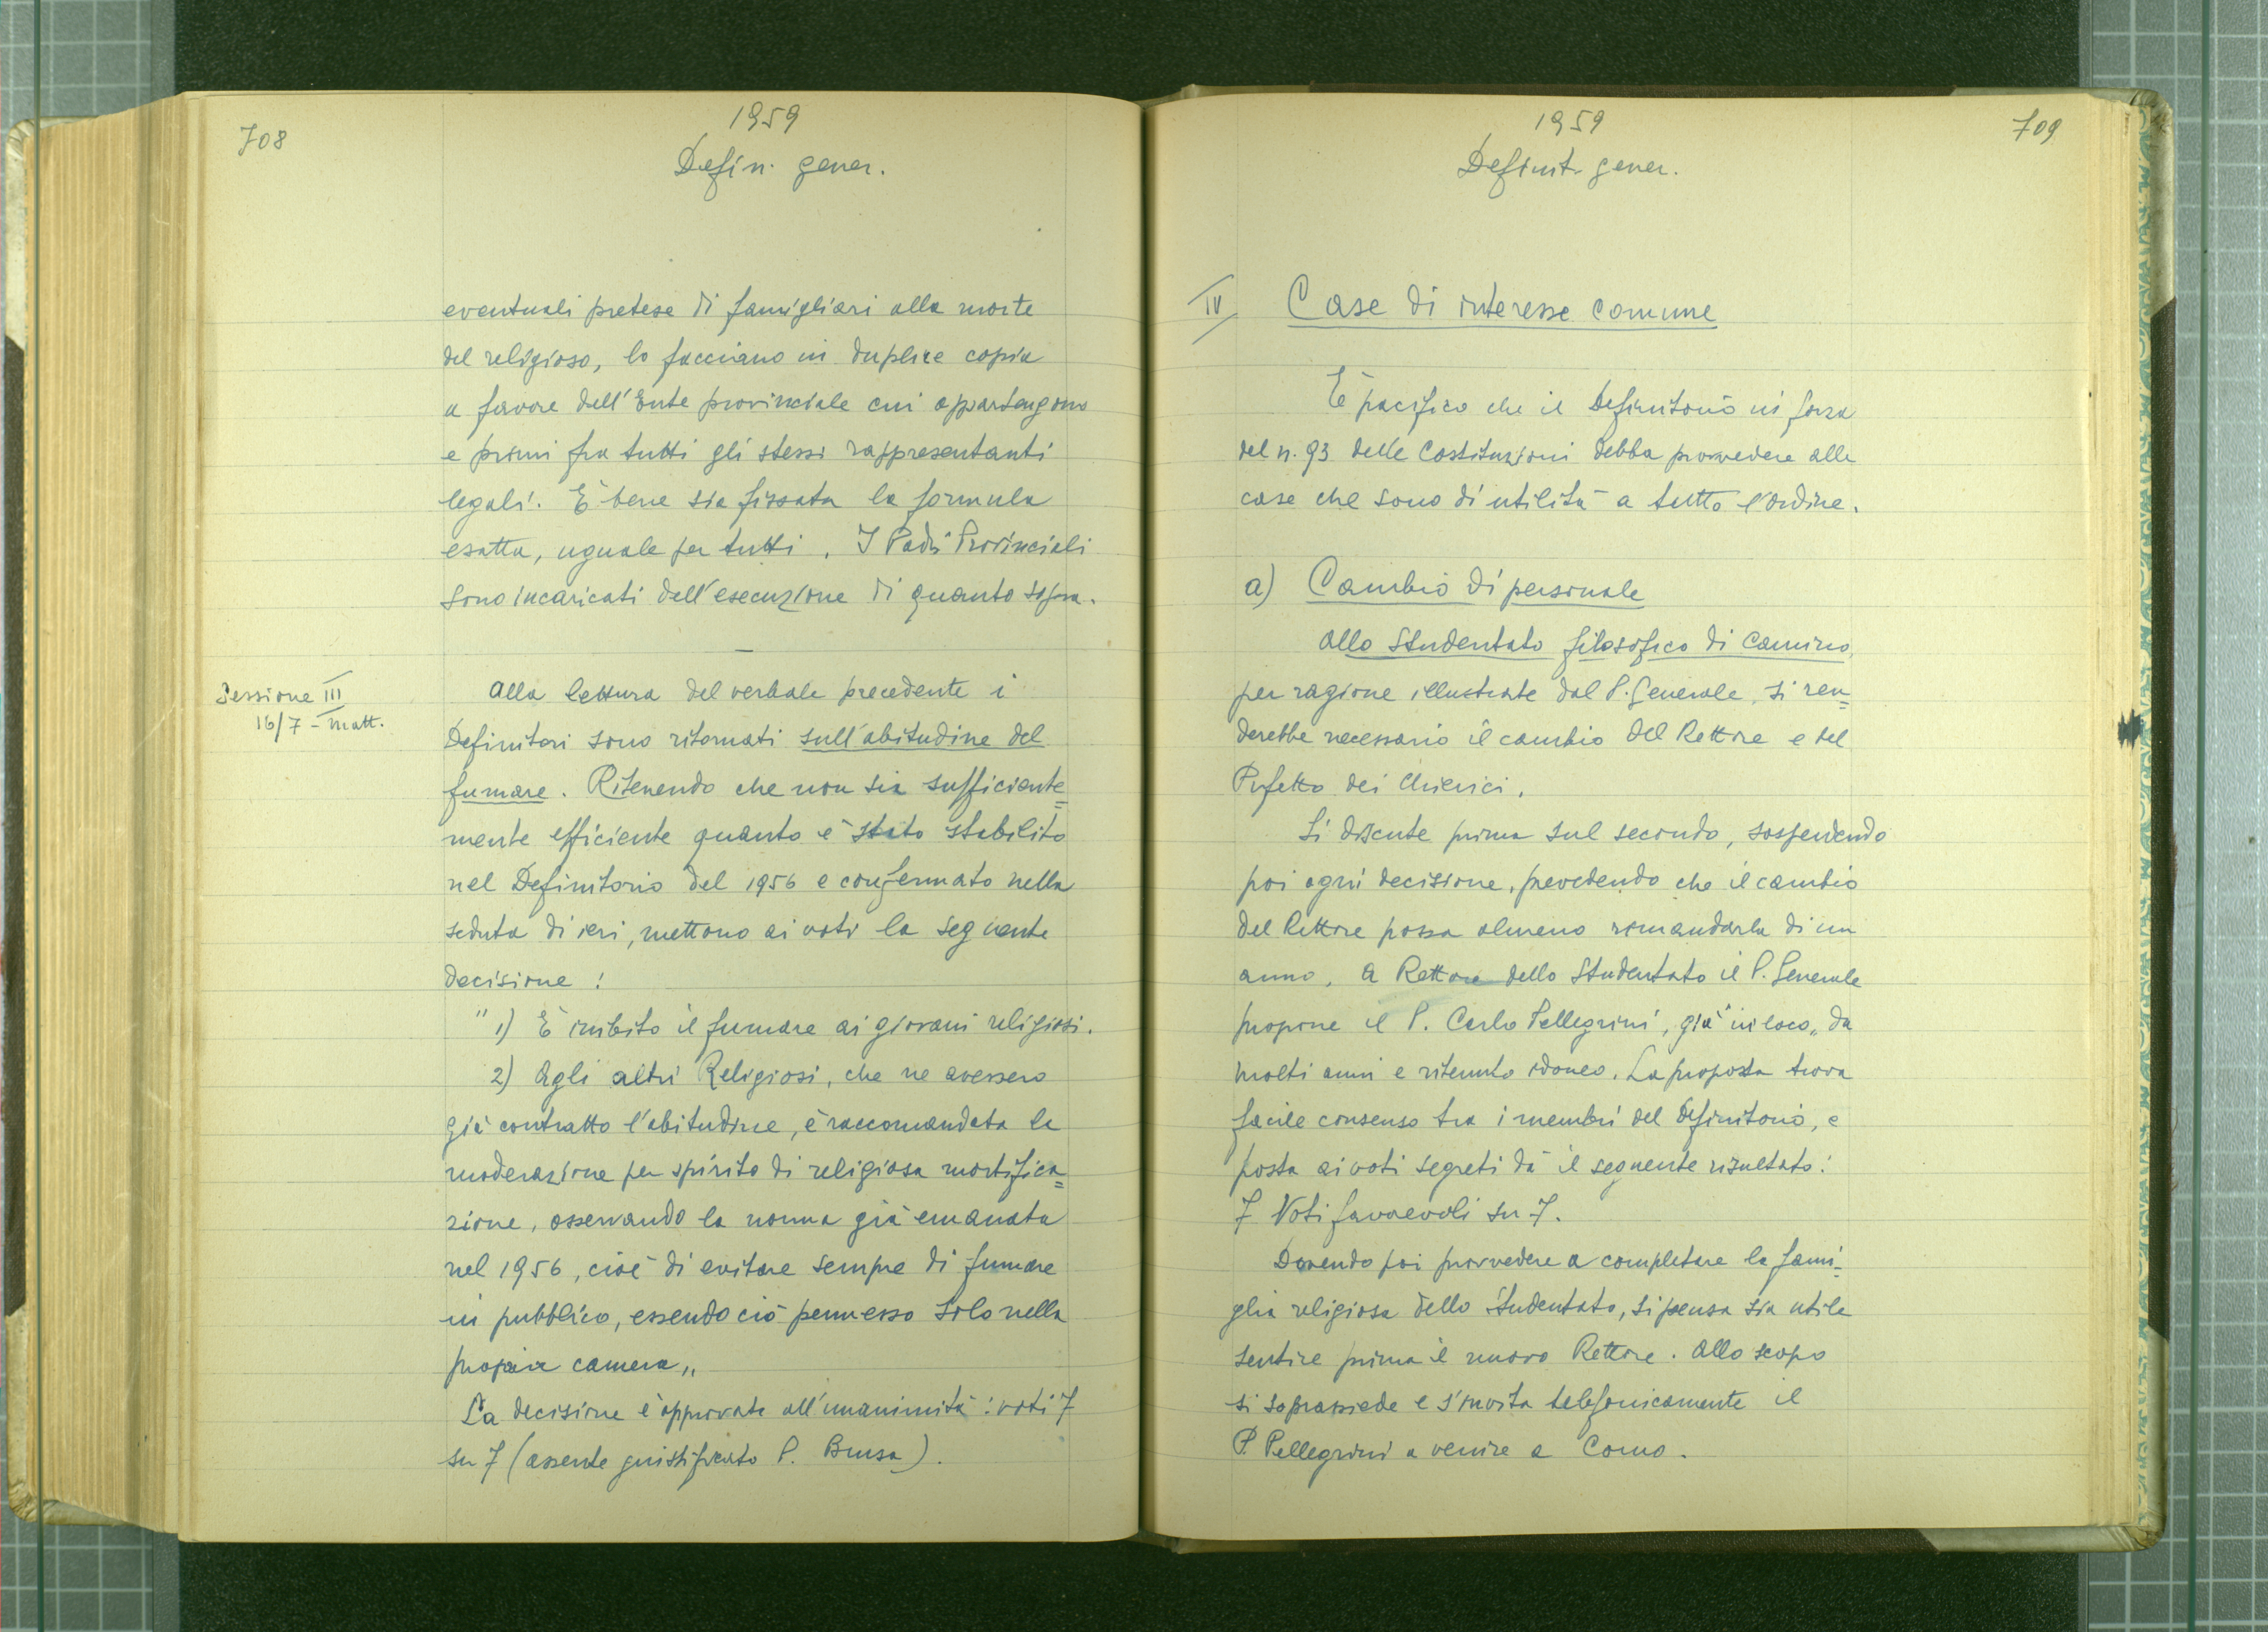 708
1959
Defin. gener.
eventuali pretese di famigliari alla morte
del religioso, lo facciano in duplice copia
a favore dell'Ente provinciale cui appartengono
e primi fra tutti gli stessi rappresentanti
legali. È bene sia fissata la formula
esatta, uguale per tutti. I Padri Provinciali
sono incaricati dell'esecuzione di quanto sopra.
Sessione III
16/7 - matt.
Alla lettura del verbale precedente i
Definitori sono ritornati sull'abitudine del
fumare. Ritenendo che non sia sufficiente=
mente efficiente quanto è stato stabilito
nel Definitorio del 1956 e confermato nella
seduta di ieri, mettono ai voti la seguente
decisione:
"1) È inibito il fumare ai giovani religiosi.
2) Agli altri Religiosi, che ne avessero
già contratto l'abitudine, è raccomandata la
moderazione per spirito di religiosa mortifica=
zione, osservando la norma già emanata
nel 1956, cioè di evitare sempre di fumare
in pubblico, essendo ciò permesso solo nella
propria camera„
La decisione è approvata all'unanimità: voti 7
su 7 (assente giustificato P. Brusa).
1959
709
Definit. gener.
IV Case di interesse comune
È pacifico che il Definitorio in forza
del n. 93 delle Costituzioni debba provvedere alle
case che sono di utilità a tutto l'Ordine.
a) Cambio di personale
Allo Studentato filosofico di Camino,
per ragione illustrate dal P. Generale, si ren=
derebbe necessario il cambio del Rettore e del
Prefetto dei Chierici.
Si discute prima sul secondo, sospendendo
poi ogni decisione, prevedendo che il cambio
del Rettore possa almeno rimandarla di un
anno. A Rettore dello Studentato il P. Generale
propone il P. Carlo Pellegrini, già "in loco„ da
molti anni e ritenuto idoneo. La proposta trova
facile consenso tra i membri del Definitorio, e
posta ai voti segreti dà il seguente risultato:
7 Voti favorevoli su 7.
Dovendo poi provvedere a completare la fami=
glia religiosa dello Studentato, si pensa sia utile
sentire prima il nuovo Rettore. Allo scopo
si soprassiede e s'invita telefonicamente il
P. Pellegrini a venire a Como.